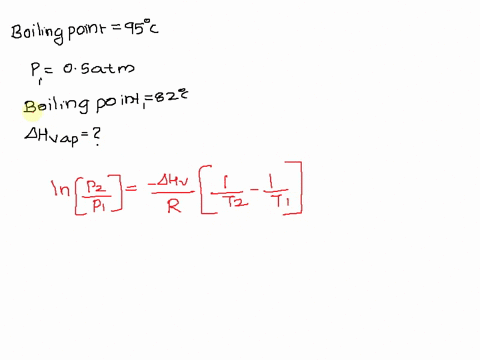 Boiling point = 95°C
P₁ = 0.5atm
Boiling point₁ = 82°C
ΔHvap = ?
ln[P₂/P₁] = -ΔHv/R [1/T₂ - 1/T₁]